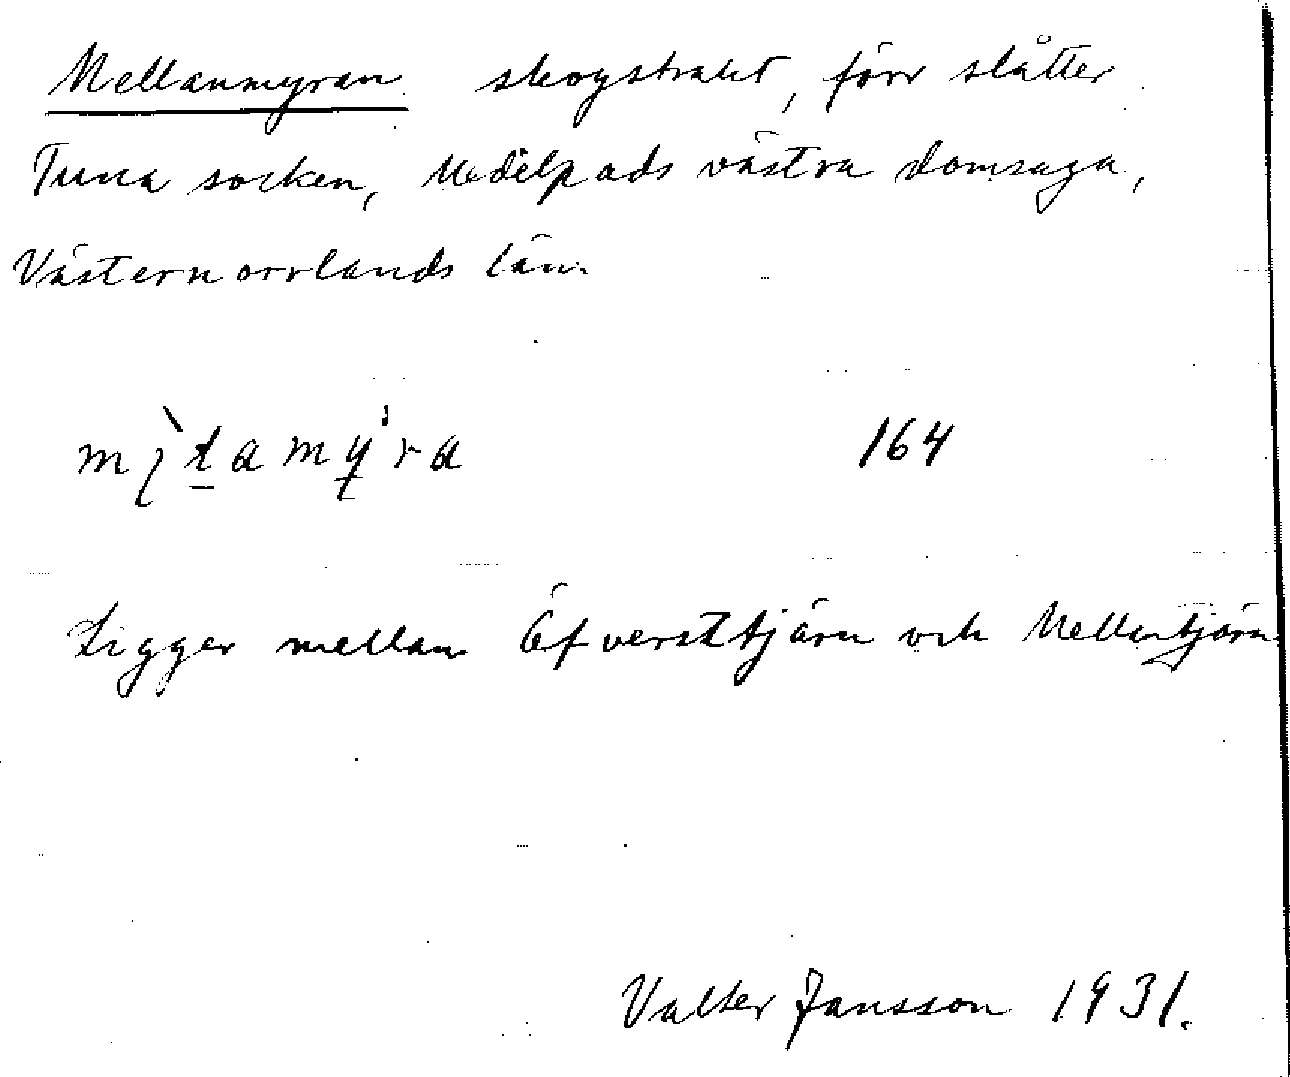 Mellanmyran skogstrakt, förr slåtter
Tuna socken, Medelpads västra domsaga,
Västernorrlands län.
164
Ligger mellan Öfversttjärn och Mellantjärn
Valter Jansson 1931.